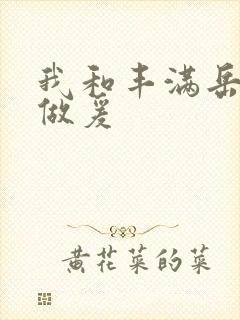 我和丰满岳
做爰
黄花菜的菜